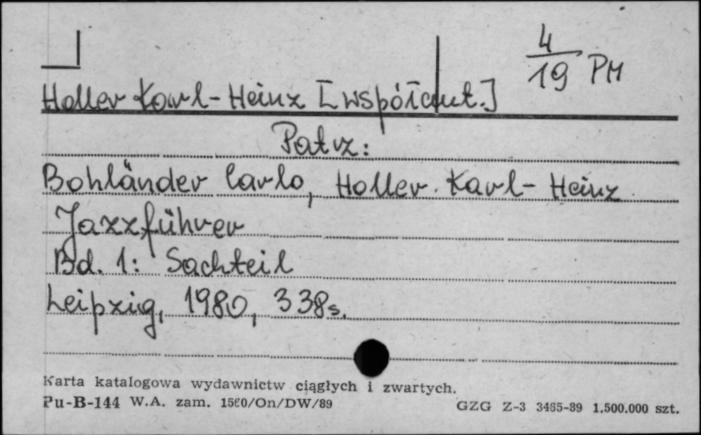 4
19 PM
Holler Karl-Heinz [współaut.]
Patrz:
Bohländer Carlo, Holler Karl-Heinz
Jazzführer
Bd. 1: Sachteil
Leipzig, 1980, 338s.
Karta katalogowa wydawnictw ciągłych i zwartych.
Pu-B-144 W.A. zam. 1560/On/DW/89 GZG Z-3 3465-89 1,500.000 szt.